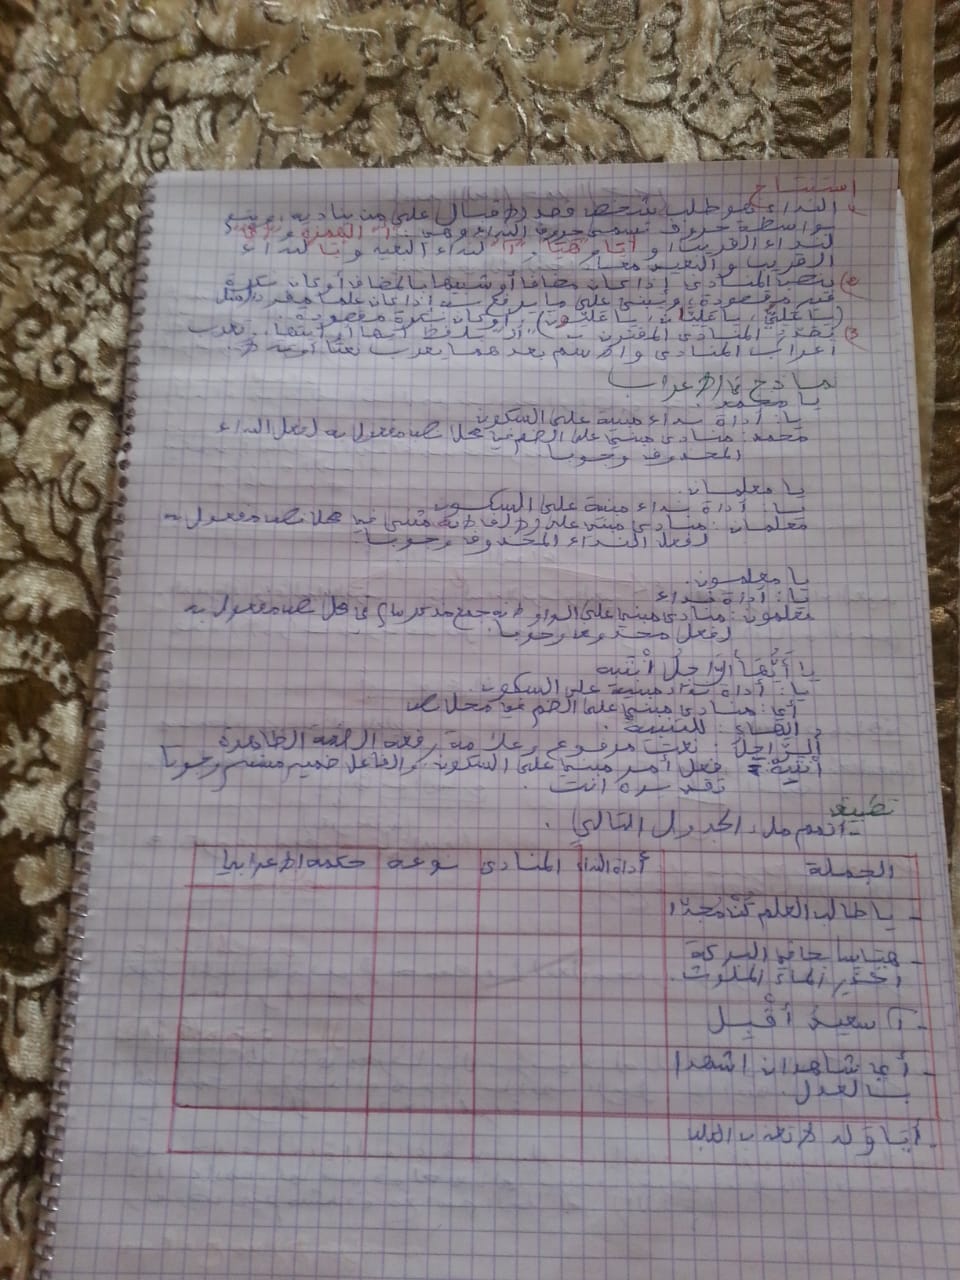 استنتاج
النداء هو طلب شخص قصد الإقبال على من يناديه، ويتم
بواسطة حروف تسمى حروف النداء وهي: الهمزة و أي
لنداء القريب، و أيا، و هيا و آ لنداء البعيد ويا لنداء
القريب والبعيد معا.
ينصب المنادى إذا كان مضافا أو شبيها بالمضاف أو كان نكرة
غير مقصودة، ويبنى على ما يرفع به إذا كان علما مفردا مثل
(يا علي، يا عليان، يا عليون) أو كان نكرة مقصودة
المنادى المقترن ب أل بلفظ أيها أو أيتها، يعرب
إعراب المنادى والاسم بعدهما يعرب نعتا
نماذج الإعراب
يا محمد:
يا: أداة نداء مبنية على السكون
محمد: منادى مبني على الضم في محل نصب مفعول به لفعل النداء
المحذوف وجوبا
يا معلمان:
يا: أداة نداء مبنية على السكون
معلمان: منادى مبني على الألف لأنه مثنى في محل نصب مفعول به
لفعل النداء المحذوف وجوبا
يا معلمون.
يا: أداة نداء
معلمون: منادى مبني على الواو لأنه جمع مذكر سالم في محل نصب مفعول به
لفعل محذوف وجوبا.
يا أَيُّهَا الرَّاجلُ انْتَبِه
يا: أداة نداء مبنية على السكون
أي: منادى مبني على الضم في محل نصب
الهاء: للتنبيه
الرَّاجلُ: نعت مرفوع وعلامة رفعه الضمة الظاهرة
انتبه: فعل أمر مبني على السكون والفاعل ضمير مستتر وجوبا
تقديره أنت.
تطبيق
- أتمم ملء الجدول التالي.
الجملة أداة النداء المنادى نوعه حكمه الإعرابي
- يا طالب العلم كُنْ مجدّا
- هيا ساحا في البركة
احذر الماء الملوث.
- آ سعيدُ أقْبِل
- أي شاهدان اشهدا
بالعدل.
- أيا ولد لا تعذب الكلب